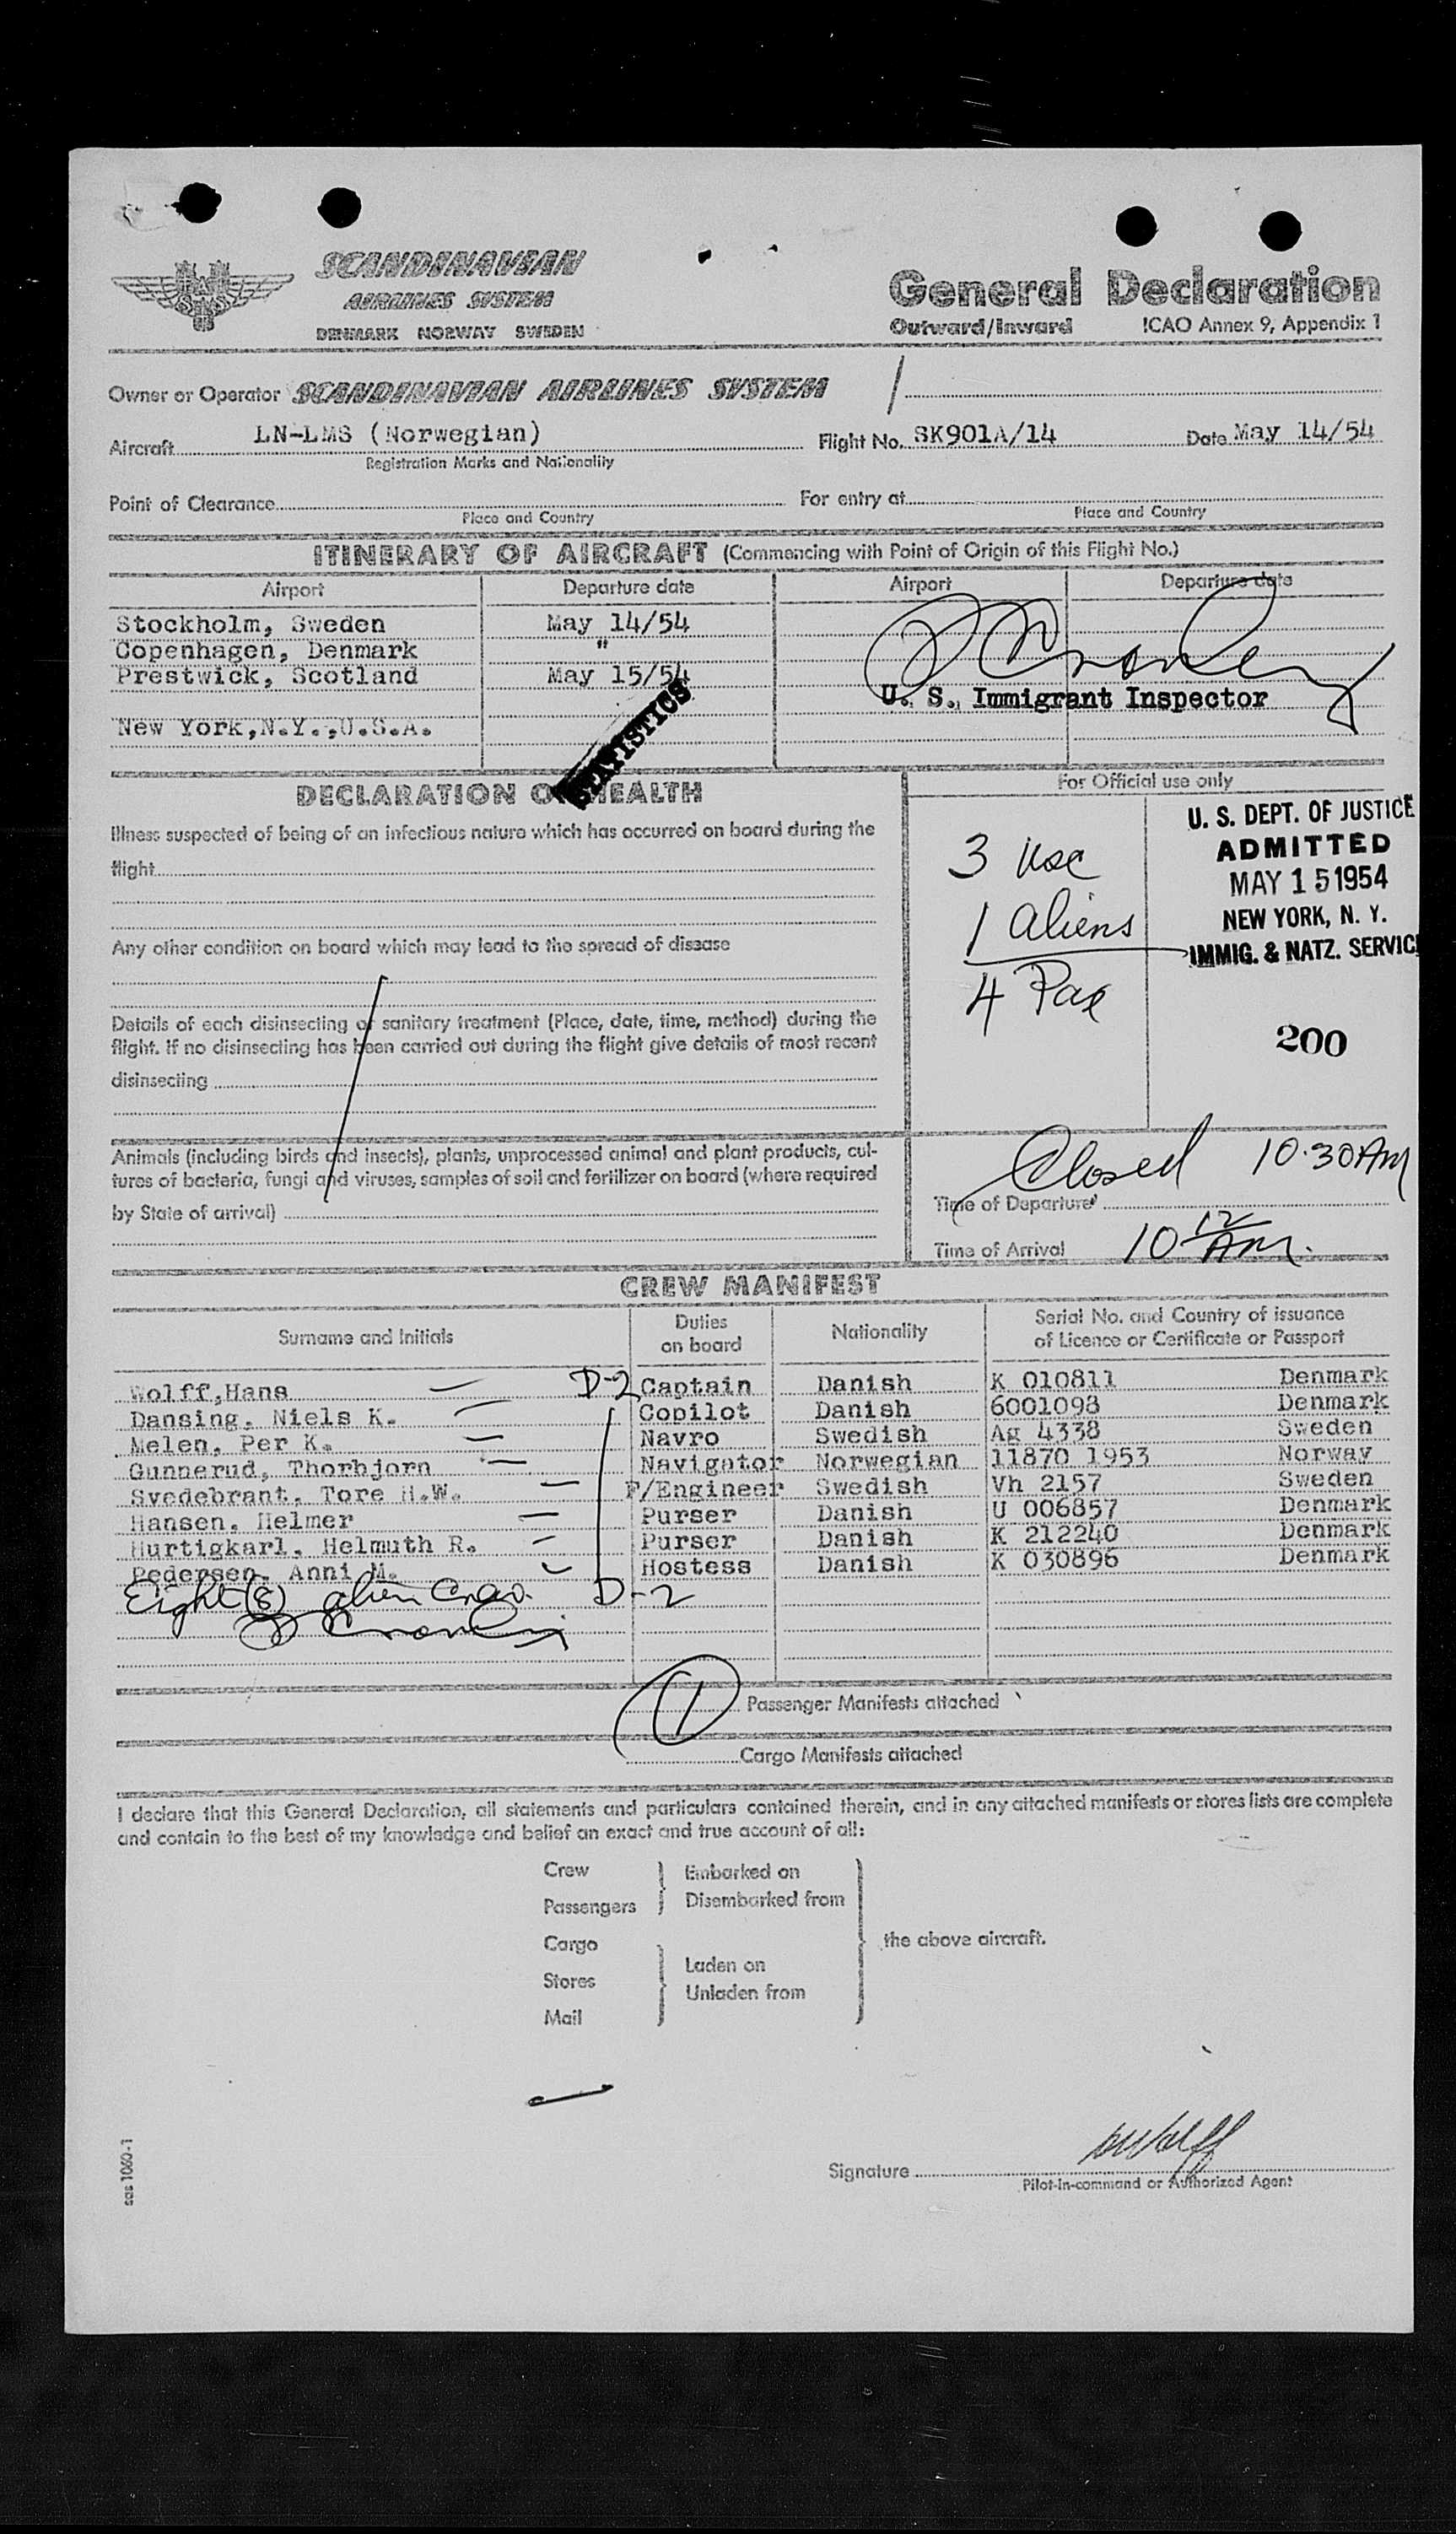 SCANDINAVIAN
AIRLINES SYSTEM
DENMARK NORWAY SWEDEN
SAS
General Declaration
Outward/Inward ICAO Annex 9, Appendix 1
Owner or Operator SCANDINAVIAN AIRLINES SYSTEM
Aircraft LN-LMS (Norwegian) Flight No. SK901A/14 Date May 14/54
Registration Marks and Nationality
Point of Clearance For entry at
Place and Country Place and Country
ITINERARY OF AIRCRAFT (Commencing with Point of Origin of this Flight No.)
Airport Departure date Airport Departure date
Stockholm, Sweden May 14/54
Copenhagen, Denmark "
Prestwick, Scotland May 15/54
U. S. Immigrant Inspector
New York,N.Y.,U.S.A.
STATISTICS
DECLARATION OF HEALTH
Illness suspected of being of an infectious nature which has occurred on board during the
flight
Any other condition on board which may lead to the spread of disease
Details of each disinsecting or sanitary treatment (Place, date, time, method) during the
flight. If no disinsecting has been carried out during the flight give details of most recent
disinsecting
Animals (including birds and insects), plants, unprocessed animal and plant products, cul-
tures of bacteria, fungi and viruses, samples of soil and fertilizer on board (where required
by State of arrival)
For Official use only
3 usc
1 aliens
4 Pax
U. S. DEPT. OF JUSTICE
ADMITTED
MAY 15 1954
NEW YORK, N. Y.
IMMIG. & NATZ. SERVIC
200
Closed 10.30 AM
Time of Departure
Time of Arrival 10 12 AM.
CREW MANIFEST
Surname and Initials Duties on board Nationality Serial No. and Country of issuance of Licence or Certificate or Passport
Wolff,Hans D-2 Captain Danish K 010811 Denmark
Dansing, Niels K. Copilot Danish 6001098 Denmark
Melen, Per K. Navro Swedish Ag 4338 Sweden
Gunnerud, Thorbjorn Navigator Norwegian 11870 1953 Norway
Svedebrant, Tore H.W. F/Engineer Swedish Vh 2157 Sweden
Hansen, Helmer Purser Danish U 006857 Denmark
Hurtigkarl, Helmuth R. Purser Danish K 212240 Denmark
Pedersen, Anni M. Hostess Danish K 030896 Denmark
Eight (8) alien Crew. D-2
1 Passenger Manifests attached
Cargo Manifests attached
I declare that this General Declaration, all statements and particulars contained therein, and in any attached manifests or stores lists are complete
and contain to the best of my knowledge and belief an exact and true account of all:
Crew Embarked on
Passengers Disembarked from
Cargo the above aircraft.
Stores Laden on
Mail Unladen from
Signature
Pilot-in-command or Authorized Agent
sas 1060-1